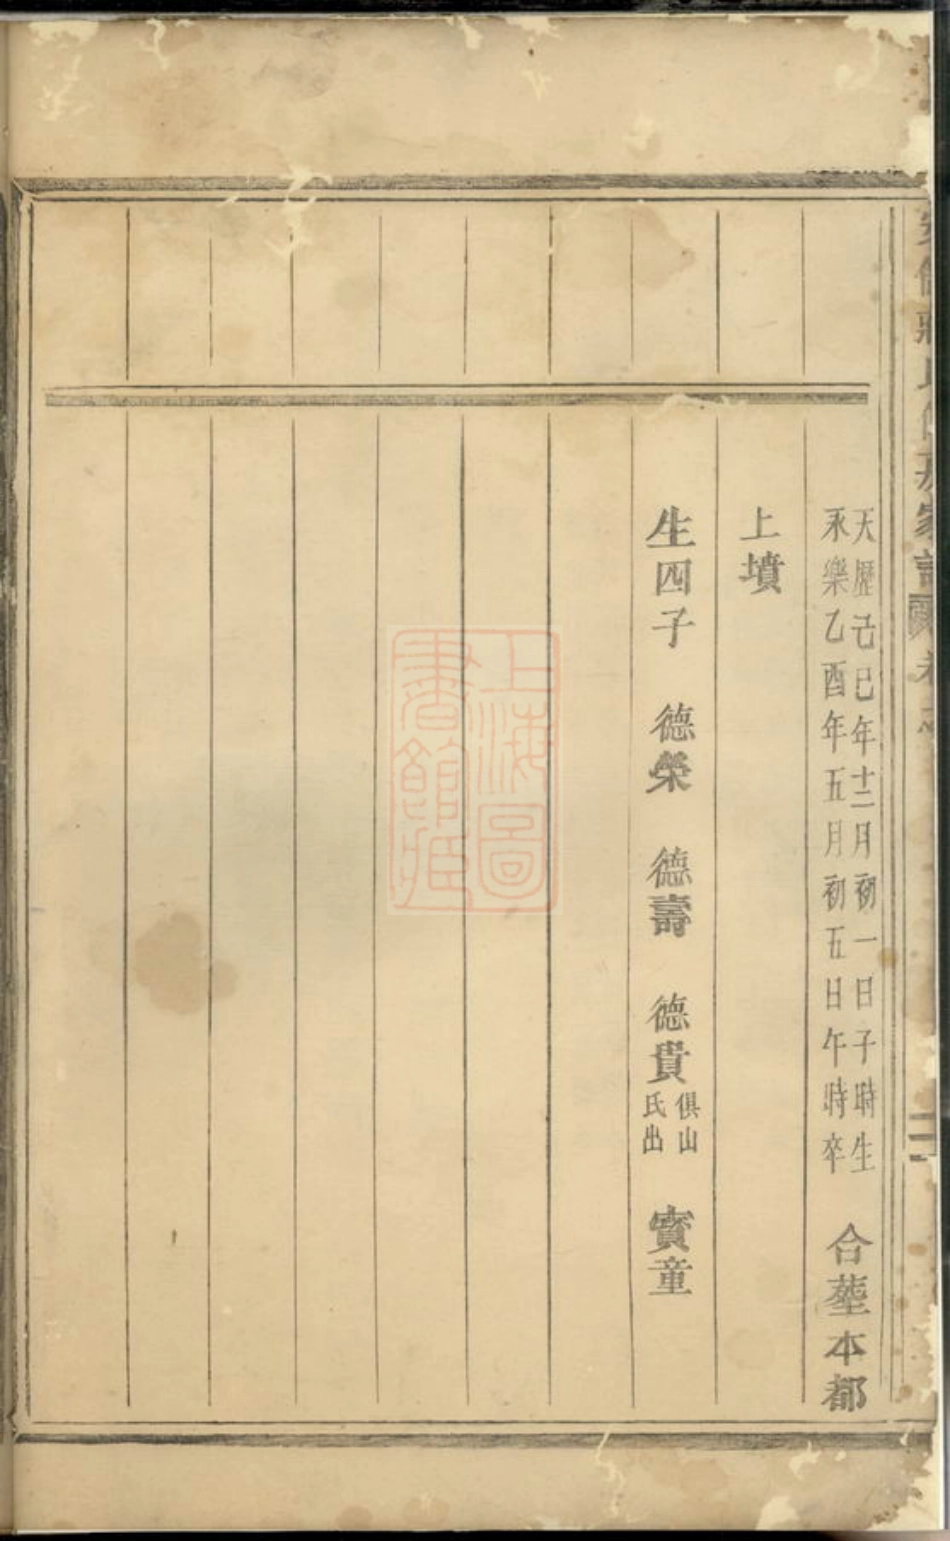 天歷己巳年十二月初一日子時生
永樂乙酉年五月初五日午時卒
合塟本都
上墳
生四子　德榮　德壽　德貴
俱山
氏出
寶童
上海圖
書館藏
家譜
卷